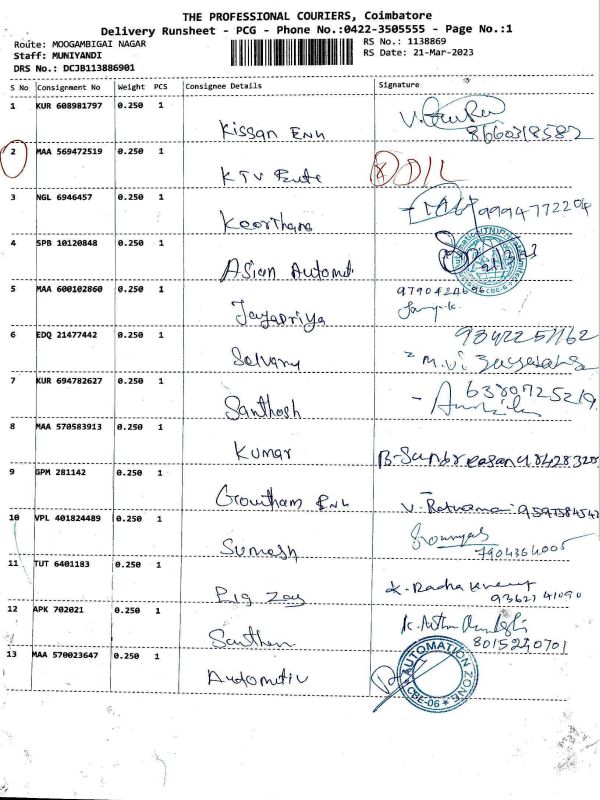 THE PROFESSIONAL COURIERS, Coimbatore
Delivery Runsheet - PCG - Phone No.:0422-3505555 - Page No.:1
Route: MOOGAMBIGAI NAGAR
Staff: MUNIYANDI
DRS No.: DCJB113886901
RS No.: 1138869
RS Date: 21-Mar-2023
S No Consignment No Weight PCS Consignee Details Signature
1 KUR 608981797 0.250 1 Kissan Enh
8660318582
2 MAA 569472519 0.250 1 KTV D/L
3 NGL 6946457 0.250 1 Keerthana 9994772204
4 SPB 10120848 0.250 1 Asian Automot 21/3/23
5 MAA 600102860 0.250 1 Jayapriya
6 EDQ 21477442 0.250 1 Selvam 9342251162
7 KUR 694782627 0.250 1 Santhosh 6380725219
8 MAA 570583913 0.250 1 Kumar
9 GPM 281142 0.250 1 Gowtham Enh
10 VPL 401824489 0.250 1 Sumesh
7904364005
11 TUT 6401183 0.250 1 Big Zay K. Radha
93627 41090
12 APK 702021 0.250 1 Santhen
8015240701
13 MAA 570023647 0.250 1 Automotiv AUTOMATION ZONE CBE-06